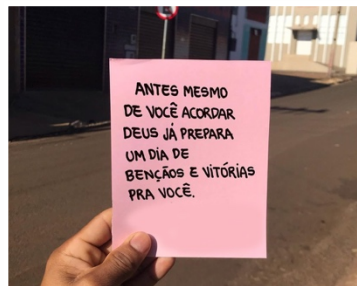 ANTES MESMO
DE VOCÊ ACORDAR
DEUS JÁ PREPARA
UM DIA DE
BENÇÃOS E VITÓRIAS
PRA VOCÊ.